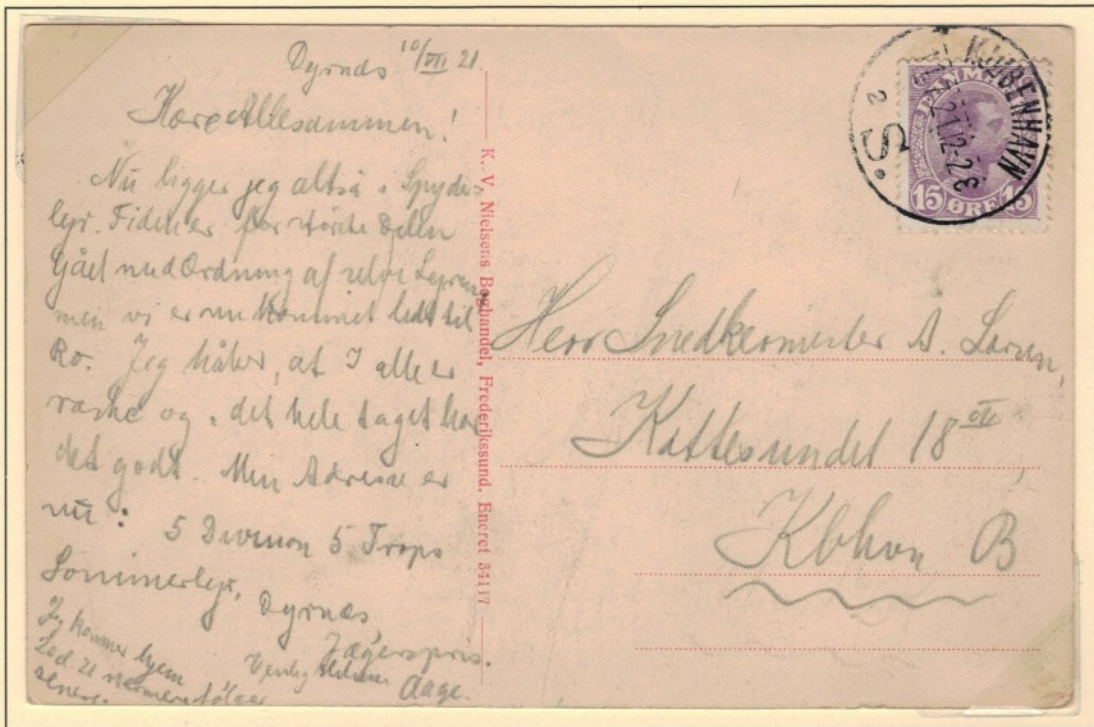 Dyrnæs 10/VII 21.
Kære Allesammen!
Nu ligger jeg altså i Spyder-
lejr. Tiden er for største Delen
gået med Ordning af selve Lejren
men vi er nu kommet lidt til
Ro. Jeg håber, at I alle er
raske og i det hele taget har
det godt. Min Adresse er
nu: 5 Division 5 Trops
Sommerlejr, Dyrnæs
Jægerspris.
Venlig Hilsen
Aage.
Jeg kommer hjem
20 d. 21 nærmere følger
senere.
K. V. Nielsens Boghandel, Frederikssund. Eneret 34117
KJØBENHAVN
21.12-2 E
2 S.
DANMARK
15 ØRE 15
Herr Snedkermester A. Larsen,
Kattesundet 18
Kbhvn B